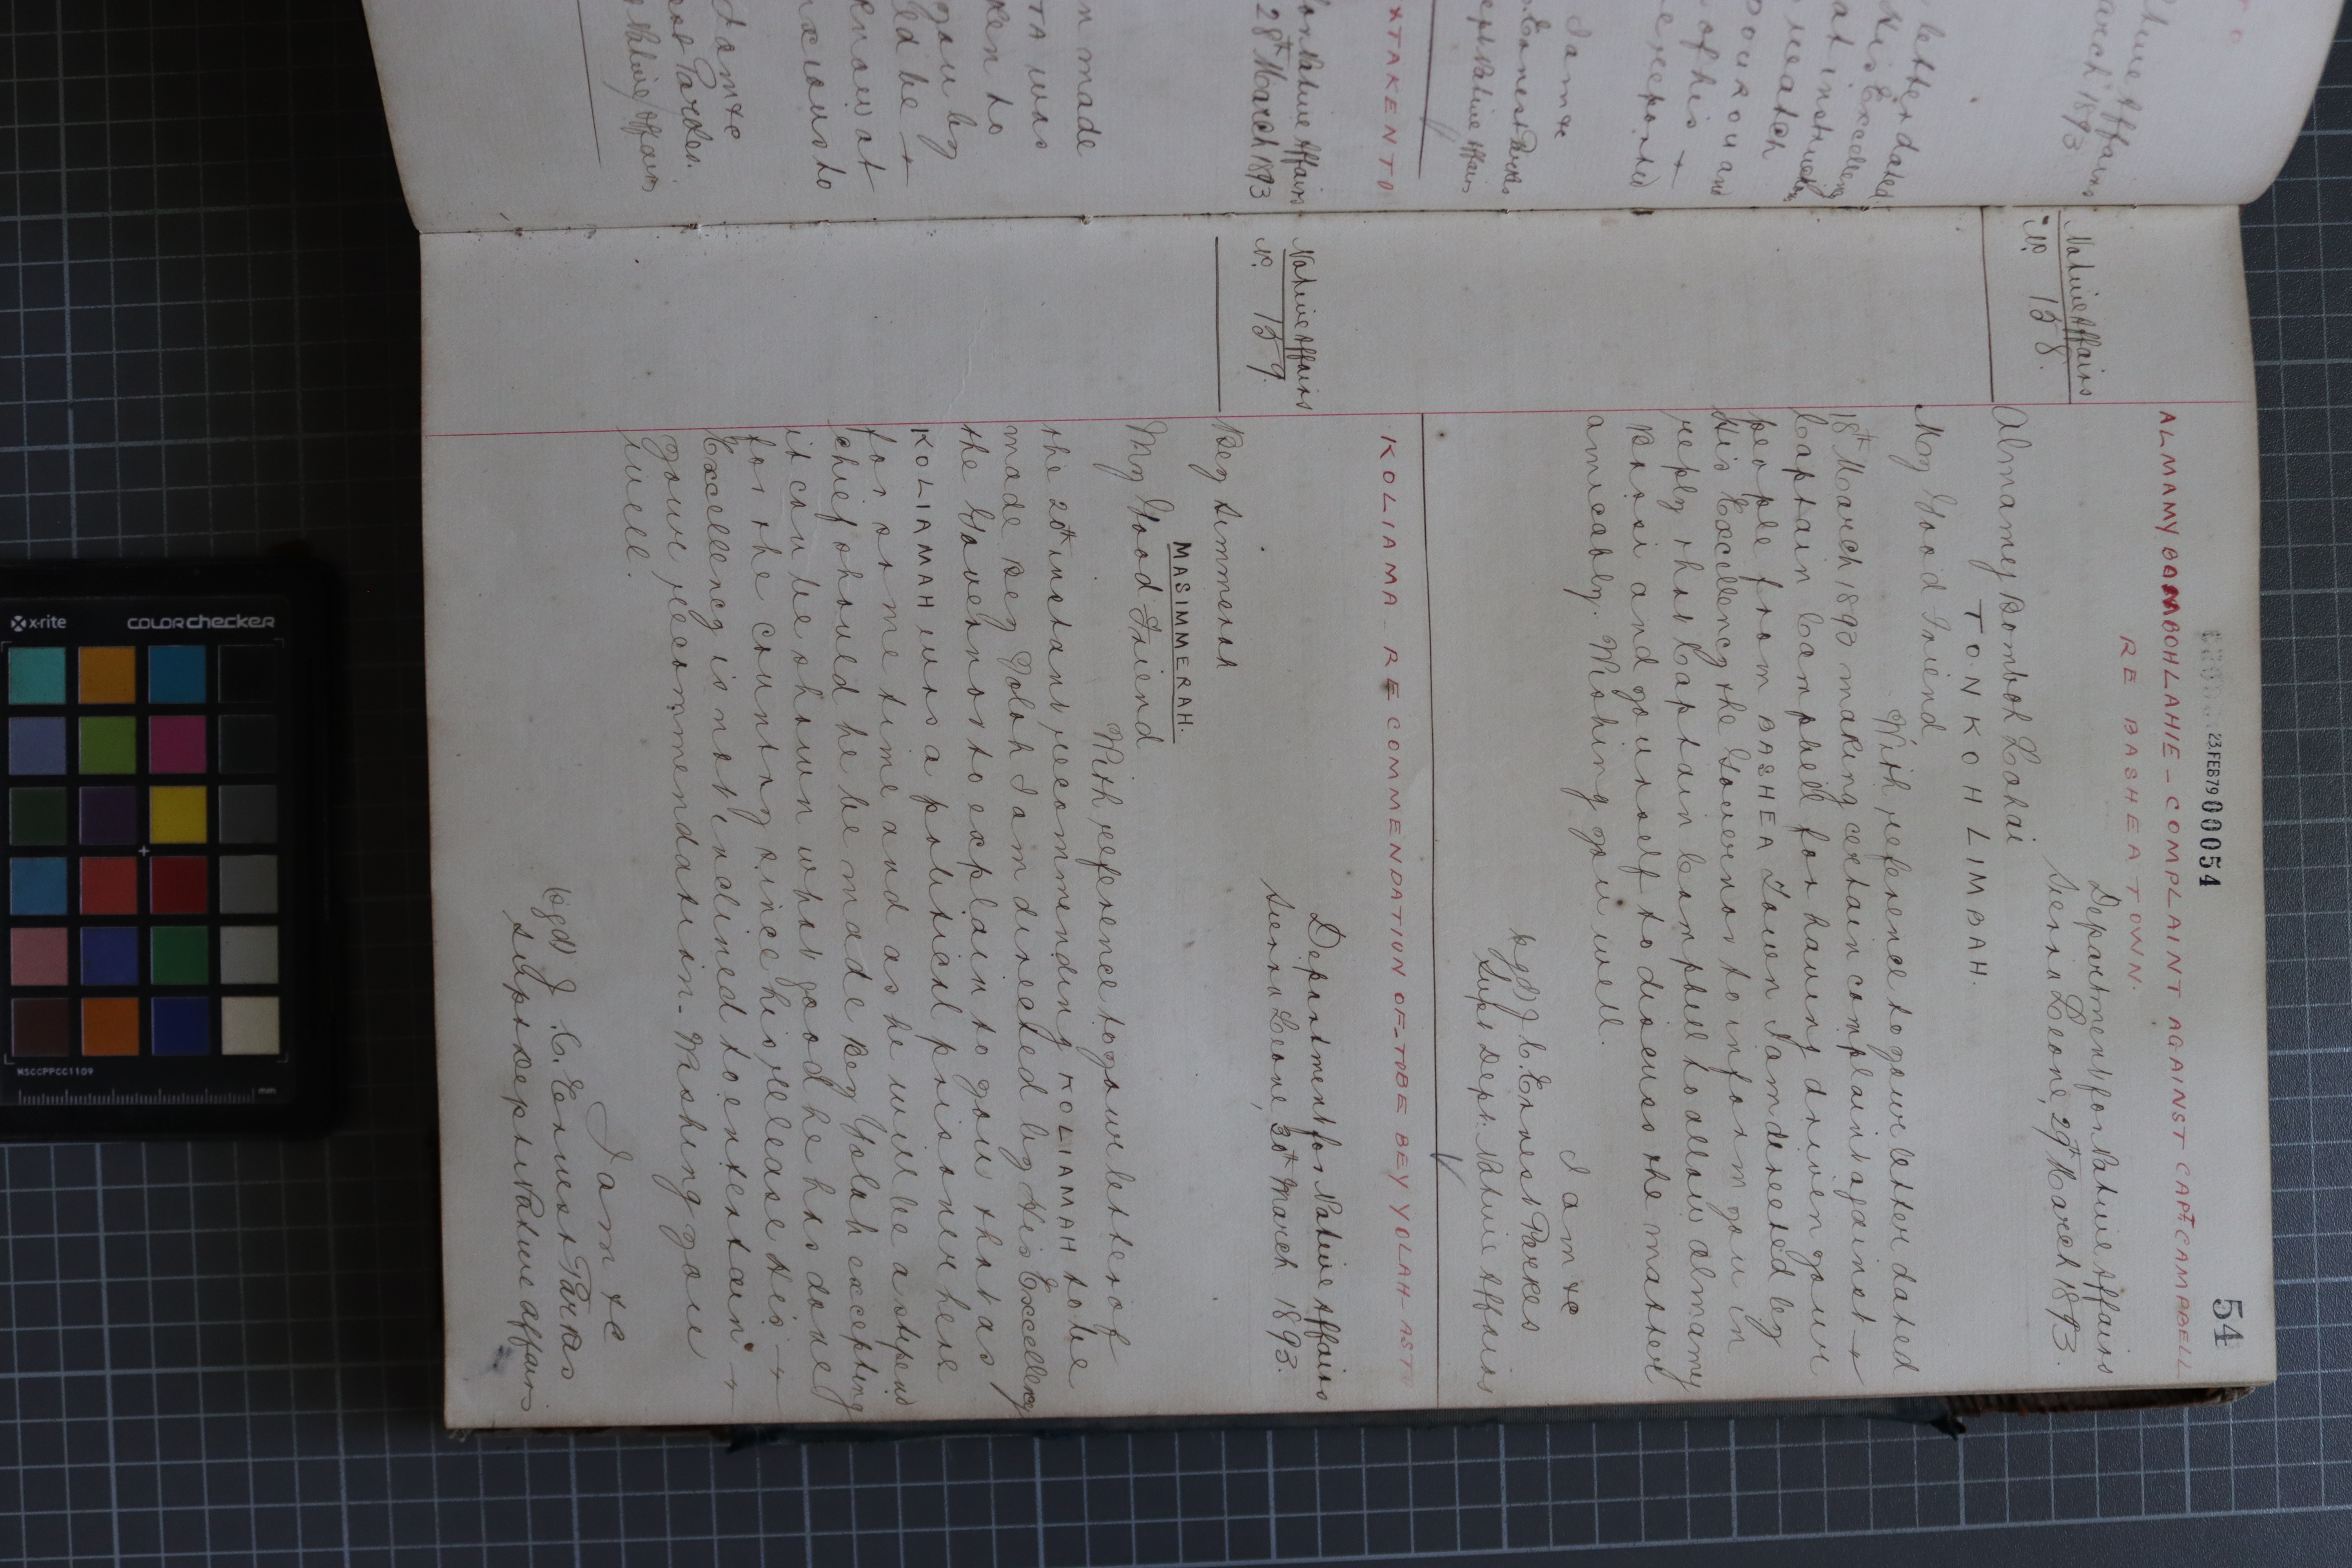 54
23.FEB79 00054
ALMAMY BOMBOHLAHIE - COMPLAINT AGAINST CAPT. CAMPBELL
RE BASHEA TOWN.
Native Affairs
No. 158.
Department for Native Affairs
Sierra Leone, 29th March 1893.
Almamy Bomboh Lahai
TONKOH LIMBAH.
My Good Friend
With reference to your letter dated
18th March 1893 making certain complaint against
Captain Campbell for having driven your
people from BASHEA Town I am directed by
His Excellency the Governor to inform you in
reply that Captain Campbell to allow Almamy
and yourself to discuss the matter
amicably. Wishing you well.
I am &c
Sgd) J. C. Ernest Parkes
Supt Dept. Native Affairs
KOLIAMA - RECOMMENDATION OF - TO BE BEY YOLAH - AS TO
Native Affairs
No. 159.
Department for Native Affairs
Sierra Leone, 30th March 1893.
Bey Simmerah
MASIMMERAH.
My Good Friend
With reference to your letter of
the 20th instant recommending KOLIAMAH to be
made Bey Yolah I am directed by His Excellency
the Governor to explain to you that as
KOLIAMAH was a political prisoner here
for some time and as he will be a stipend
chief should he be made Bey Yolah excepting
it can be shown what good he has done
for the country since his release His
Excellency is not inclined to entertain
your recommendation. Wishing you
well.
I am &c
Sgd) J. C. Ernest Parkes
Supt Dept Native Affairs
Native Affairs
March 1893
letter dated
His Excellency
at instructing
of his
reported
I am &c
Ernest Parkes
Dept Native Affairs
TAKEN TO
for Native Affairs
28th March 1893
n made
TA was
ken to
you by
ld be
know at
nxious to
I am &c
Native Affairs
x-rite
colorchecker
MSCCPPCC1109
mm